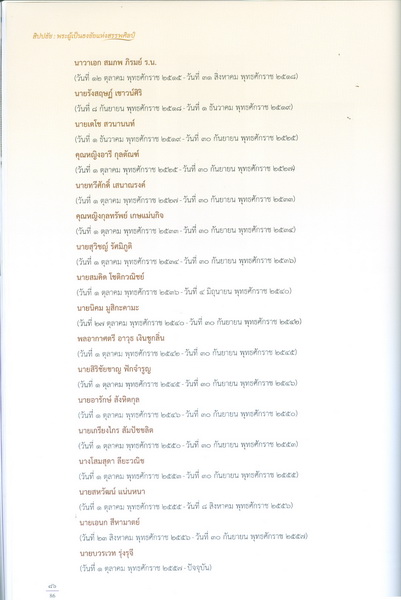 สิปปธัช : พระผู้เป็นธงชัยแห่งสรรพศิลป์
นาวาเอก สมภพ ภิรมย์ ร.น.
(วันที่ ๑๒ ตุลาคม พุทธศักราช ๒๕๑๕ - วันที่ ๓๑ สิงหาคม พุทธศักราช ๒๕๑๘)
นายรังสฤษฎ์ เชาวน์ศิริ
(วันที่ ๘ กันยายน พุทธศักราช ๒๕๑๘ - วันที่ ๑ ธันวาคม พุทธศักราช ๒๕๑๙)
นายเดโช สวนานนท์
(วันที่ ๑ ธันวาคม พุทธศักราช ๒๕๑๙ - วันที่ ๓๐ กันยายน พุทธศักราช ๒๕๒๕)
คุณหญิงอารี กุลตัณฑ์
(วันที่ ๑ ตุลาคม พุทธศักราช ๒๕๒๕ - วันที่ ๓๐ กันยายน พุทธศักราช ๒๕๒๗)
นายทวีศักดิ์ เสนาณรงค์
(วันที่ ๑ ตุลาคม พุทธศักราช ๒๕๒๗ - วันที่ ๓๐ กันยายน พุทธศักราช ๒๕๓๓)
คุณหญิงกุลทรัพย์ เกษแม่นกิจ
(วันที่ ๑ ตุลาคม พุทธศักราช ๒๕๓๓ - วันที่ ๓๐ กันยายน พุทธศักราช ๒๕๓๔)
นายสุวิชญ์ รัศมิภูติ
(วันที่ ๑ ตุลาคม พุทธศักราช ๒๕๓๔ - วันที่ ๓๐ กันยายน พุทธศักราช ๒๕๓๖)
นายสมคิด โชติกวณิชย์
(วันที่ ๑ ตุลาคม พุทธศักราช ๒๕๓๖ - วันที่ ๔ มิถุนายน พุทธศักราช ๒๕๔๐)
นายนิคม มูสิกะคามะ
(วันที่ ๒๗ ตุลาคม พุทธศักราช ๒๕๔๐ - วันที่ ๓๐ กันยายน พุทธศักราช ๒๕๔๒)
พลอากาศตรี อาวุธ เงินชูกลิ่น
(วันที่ ๑ ตุลาคม พุทธศักราช ๒๕๔๒ - วันที่ ๓๐ กันยายน พุทธศักราช ๒๕๔๕)
นายสิริชัยชาญ ฟักจำรูญ
(วันที่ ๑ ตุลาคม พุทธศักราช ๒๕๔๕ - วันที่ ๓๐ กันยายน พุทธศักราช ๒๕๔๖)
นายอารักษ์ สังหิตกุล
(วันที่ ๑ ตุลาคม พุทธศักราช ๒๕๔๖ - วันที่ ๓๐ กันยายน พุทธศักราช ๒๕๕๐)
นายเกรียงไกร สัมปัชชลิต
(วันที่ ๑ ตุลาคม พุทธศักราช ๒๕๕๐ - วันที่ ๓๐ กันยายน พุทธศักราช ๒๕๕๓)
นางโสมสุดา ลียะวณิช
(วันที่ ๑ ตุลาคม พุทธศักราช ๒๕๕๓ - วันที่ ๓๐ กันยายน พุทธศักราช ๒๕๕๕)
นายสหวัฒน์ แน่นหนา
(วันที่ ๑ ตุลาคม พุทธศักราช ๒๕๕๕ - วันที่ ๘ สิงหาคม พุทธศักราช ๒๕๕๖)
นายเอนก สีหามาตย์
(วันที่ ๒๓ สิงหาคม พุทธศักราช ๒๕๕๖ - วันที่ ๓๐ กันยายน พุทธศักราช ๒๕๕๗)
นายบวรเวท รุ่งรุจี
(วันที่ ๑ ตุลาคม พุทธศักราช ๒๕๕๗ - ปัจจุบัน)